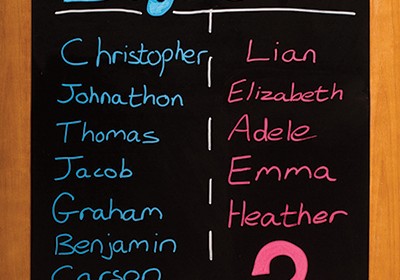 Christopher
Johnathon
Thomas
Jacob
Graham
Benjamin
Carson
Lian
Elizabeth
Adele
Emma
Heather
?